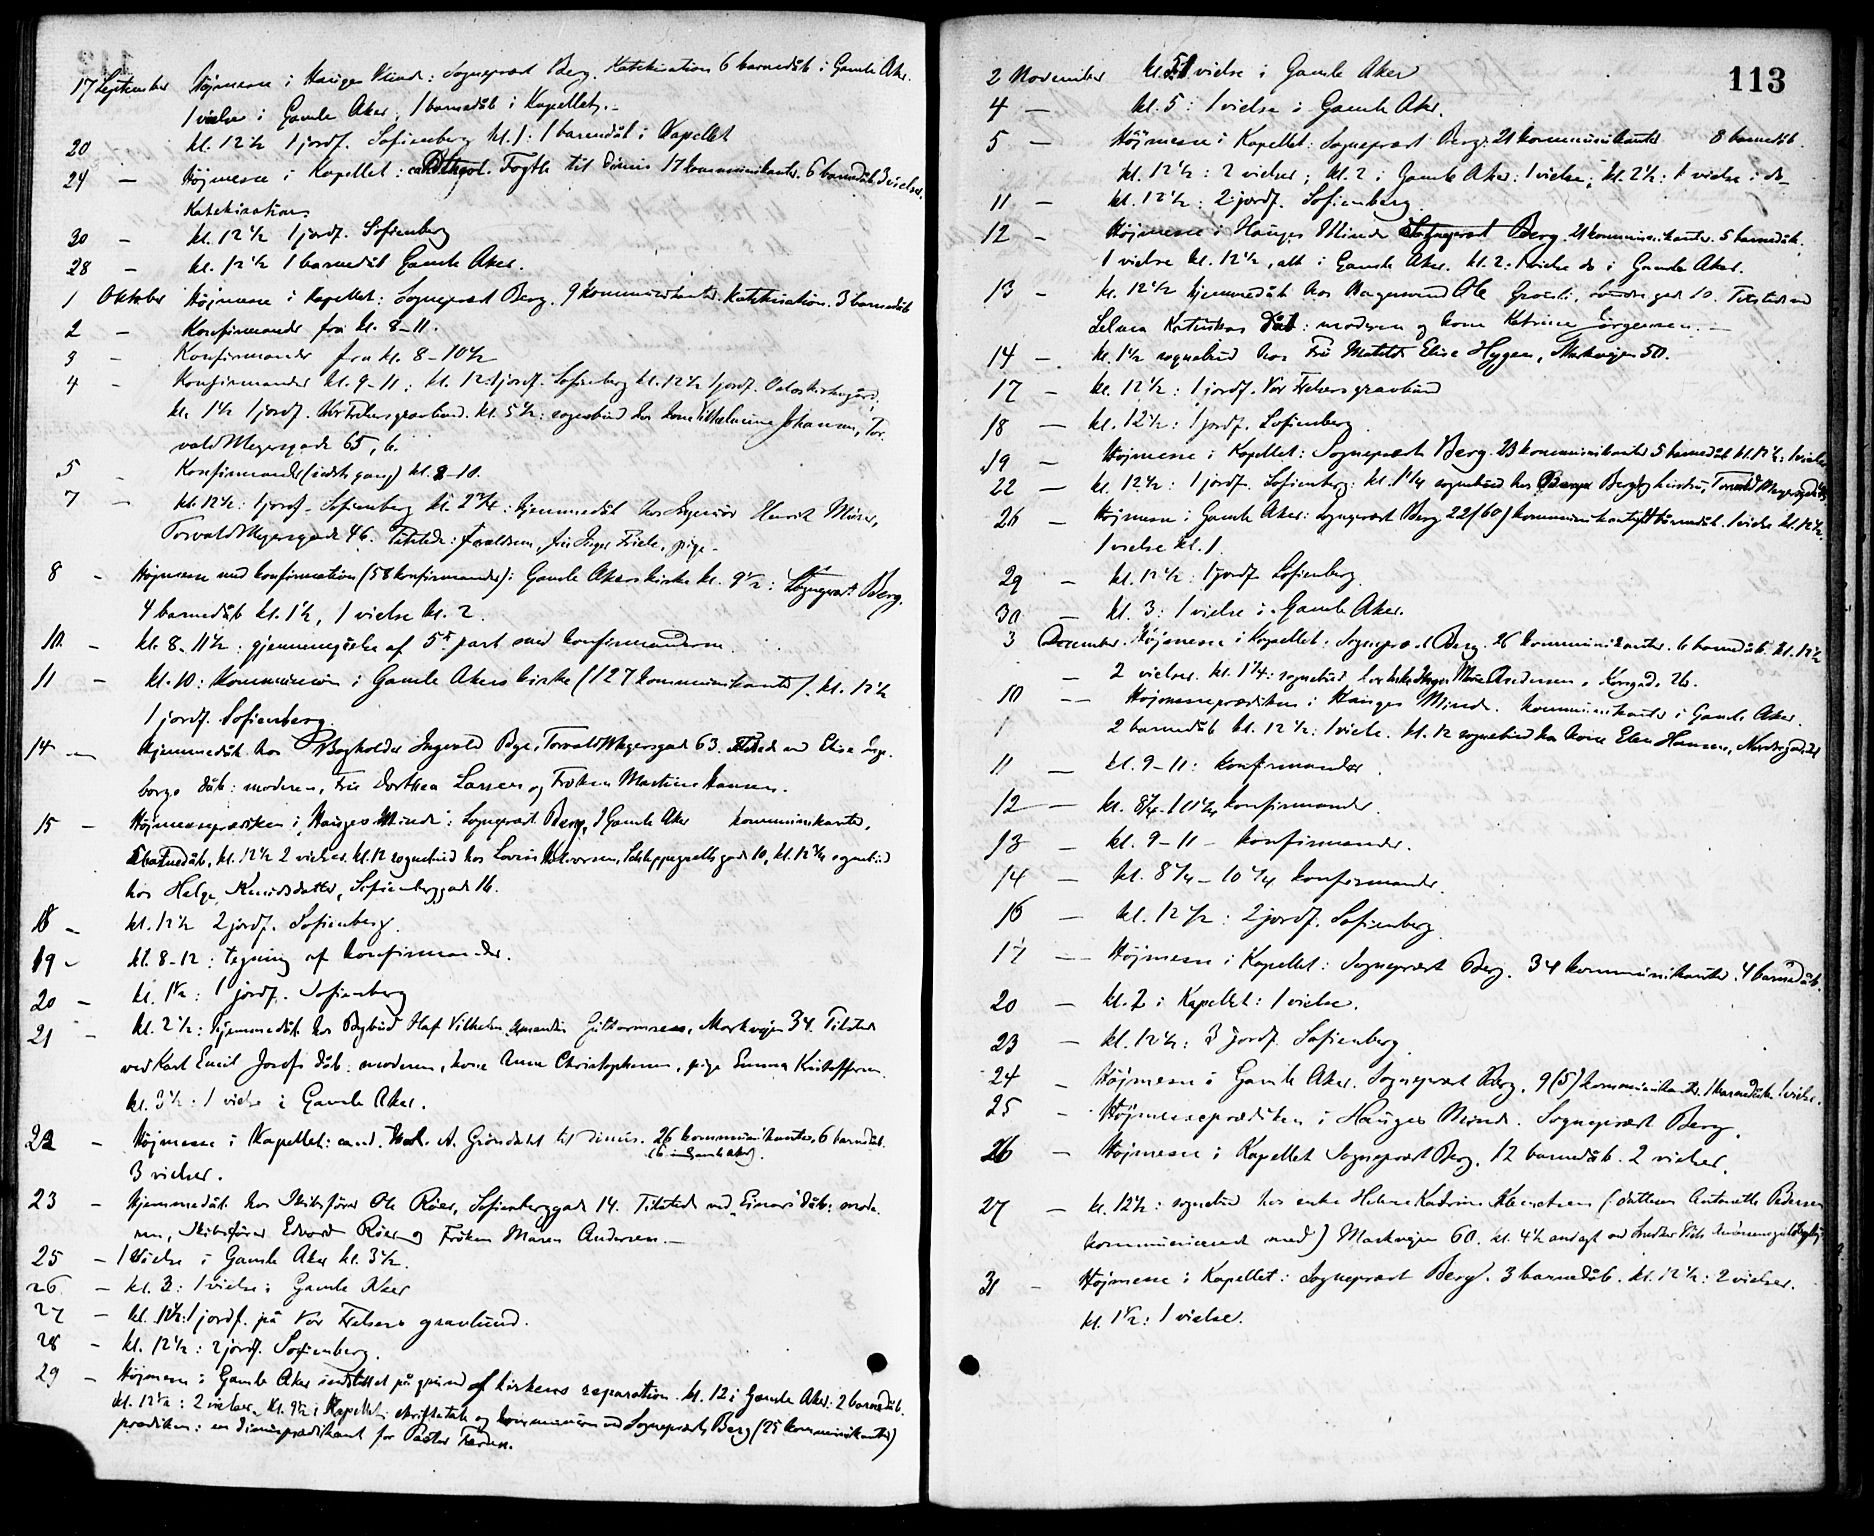 17 September Højmesse i Hauges Minde: Sogneprest Berg. Katekisation 6 barnedåb i Gamle Aker.
1 vielse i Gamle Aker, 1 barnedåb i Kapellet.
20 kl. 12 1/2 1 jordf. Sofienberg kl. 1: 1 barnedåb i Kapellet
24 — Højmesse i Kapellet: cand. theol. Fogth til dimis 17 kommunikanter. 6 barnedåb, 3 vielser.
Katekisation.
30 — kl. 12 1/2 1 jordf. Sofienberg
28 — kl. 12 1/2 1 barnedåb Gamle Aker.
1 Oktober Højmesse i Kapellet: Sogneprest Berg. 9 kommunikanter. Katekisation. 3 barnedåb
2 — Konfirmander fra kl. 8-11.
3 — Konfirmander fra kl. 8-10 1/2
4 — Konfirmander kl. 9-11; kl. 12: 1 jordf. Sofienberg kl. 12 1/2 1 jordf.
kl. 1 1/2 1 jordf. Vor Frelsers gravlund. kl. 5 1/2: sognebud hos kone Vilhelmine Johansen, Tor-
vald Meyersgade 65, 6.
5 — Konfirmander (sidste gang) kl. 8-10.
7 — kl. 12 1/2: 1 jordf. Sofienberg kl. 2 3/4: hjemmedåb hos Ingeniør Henrik
Torvald Meyersgade 46. Tilstede: forældrene, fru Inger Friele, pige.
8 — Højmesse med konfirmation (58 konfirmander) i Gamle Akers kirke kl. 9 1/2: Sogneprest Berg.
4 barnedåb kl. 1 1/2, 1 vielse kl. 2.
10. — kl. 8-11 1/2: gjennemgåelse af 5te part med konfirmanderne.
11 — kl. 10: Kommunion i Gamle Akers kirke (127 kommunikanter). kl. 12 1/2
1 jordf. Sofienberg.
14 — Hjemmedåb hos Bogholder Ingvald Bye, Torvald Meyersgade 63. Tilstede ved Elise Inge-
borgs dåb: moderen, Fru Dorthea Larsen og Frøken Martine Hansen.
15 — Højmesseprædiken i Hauges Minde: Sogneprest Berg, I Gamle Aker kommunikanter,
barnedåb, kl. 12 1/2 2 vielser. kl. 12 sognebud hos Lovise Halvorsen, Schleppegrells gade 10, kl. 12 3/4 sognebud
hos Helga Knudsdatter, Sofienberggade 16.
18 — kl. 12 1/2 2 jordf. Sofienberg.
19 — kl. 8-12: tegning af konfirmander.
20 — kl. 1 1/2: 1 jordf. Sofienberg
21 — kl. 2 1/2: hjemmedåb hos Bybud Olaf Vilhelm Guttormsen, Markveien 34. Tilstede
ved Karl Emil Josefs dåb: moderen, kone Anne Christophersen, pige Emma Kristoffersen.
kl. 3 1/2: 1 vielse i Gamle Aker.
22 — Højmesse i Kapellet: cand. theol. A. Grøndahl til dimis. 26 kommunikanter, 6 barnedåb.
(6 i Gamle Aker).
3 vielser.
23 — Hjemmedåb hos Skibsfører Ole Røer, Sofienberggade 14. Tilstede ved Einars dåb: mode-
ren, Skibsfører Edvard Røer og Frøken Maren Andersen.
25 — 1 Vielse i Gamle Aker kl. 3 1/2.
26 — kl. 3: 1 vielse i Gamle Aker
27 — kl. 12 1/2: 1 jordf. på Vor Frelsers gravlund.
28 — kl. 12 1/2: 2 jordf. Sofienberg.
29 — Højmesse i Gamle Aker indstillet på grund af kirkens reparation. kl. 12 i Gamle Aker: 2 barnedåb.
kl. 12 1/2: 2 vielser. Kl. 9 1/2 i Kapellet: skriftetale og kommunion ved Sogneprest Berg (25 kommunikanter)
prædiken: en dimisprædikant for Pastor Færden.
113
2 November kl. 5 1 vielse i Gamle Aker
4 — kl. 5: 1 vielse i Gamle Aker.
5 — Højmesse i Kapellet: Sogneprest Berg. 21 kommunikanter 8 barnedåb.
kl. 12 1/2: 2 vielser; kl. 2 i Gamle Aker: 1 vielse; kl. 2 1/2: 1 vielse i do
11 — kl. 12 1/2: 2 jordf. Sofienberg
12 — Højmesse i Hauges Minde Sogneprest Berg. 21 kommunikanter. 5 barnedåb.
1 vielse kl. 12 1/2, alt i Gamle Aker. kl. 2: 1 vielse do i Gamle Aker.
13 — kl. 12 1/2 hjemmedåb hos Ole gade 10. Tilstede ved
Selma Katinkas dåb: moderen og kone Katrine Jørgensen.
14 — kl. 1 1/2 sognebud hos Fru Matilde Elise Hygen, Markveien 50.
17 — kl. 12 1/2: 1 jordf. Vor Frelsers gravlund
18 — kl. 12 1/2: 1 jordf. Sofienberg
19 — Højmesse i Kapellet: Sogneprest Berg. 23 kommunikanter 5 barnedåb kl. 12 1/2: 1 vielse
22 — kl. 12 1/2: 1 jordf. Sofienberg: kl. 1 1/4 sognebud hos Berg og hustru, Torvald Meyersgade
26 — Højmesse i Gamle Aker: Sogneprest Berg 22 (60) kommunikanter barnedåb. 1 vielse kl. 12 1/2,
1 vielse kl. 1.
29 — kl. 12 1/2: 1 jordf. Sofienberg.
30 — kl. 3: 1 vielse i Gamle Aker.
3 December. Højmesse i Kapellet. Sogneprest Berg. 26 kommunikanter. 6 barnedåb. kl. 12 1/2
— 2 vielser. kl. 1 1/4: sognebud hos Marie Andersen, Korsgad. 26.
10 — Højmesseprædiken i Hauges Minde. Kommunikanter i Gamle Aker.
2 barnedåb kl. 12 1/2: 1 vielse. kl. 12 sognebud hos kone Elen Hansen, Nordregade 21
11 — kl. 9-11: konfirmander.
12 — kl. 8 1/4-10 1/4 konfirmander.
13 — kl. 9-11 - konfirmander.
14 — kl. 8 1/4 - 10 1/4 konfirmander.
16 — kl. 12 1/2: 2 jordf. Sofienberg.
17 — Højmesse i Kapellet: Sogneprest Berg. 34 kommunikanter. 4 barnedåb.
20 — kl. 2 i Kapellet: 1 vielse.
23 — kl. 12 1/2: 3 jordf. Sofienberg
24 — Højmesse i Gamle Aker. Sogneprest Berg. 9 (5) kommunikanter. 1 barnedåb. 1 vielse.
25 — Højmesseprædiken i Hauges Minde. Sogneprest Berg.
26 — Højmesse i Kapellet Sogneprest Berg, 12 barnedåb. 2 vielser.
27 — kl. 12 1/2: sognebud hos enke Helene Katrine (datteren Antonette Pedersen
kommunicerede med) Markveien 60. kl. 4 1/2 andagt ved
31 — Højmesse i Kapellet: Sogneprest Berg. 3 barnedåb. kl. 12 1/2: 2 vielser.
kl. 1 1/2: 1 vielse.